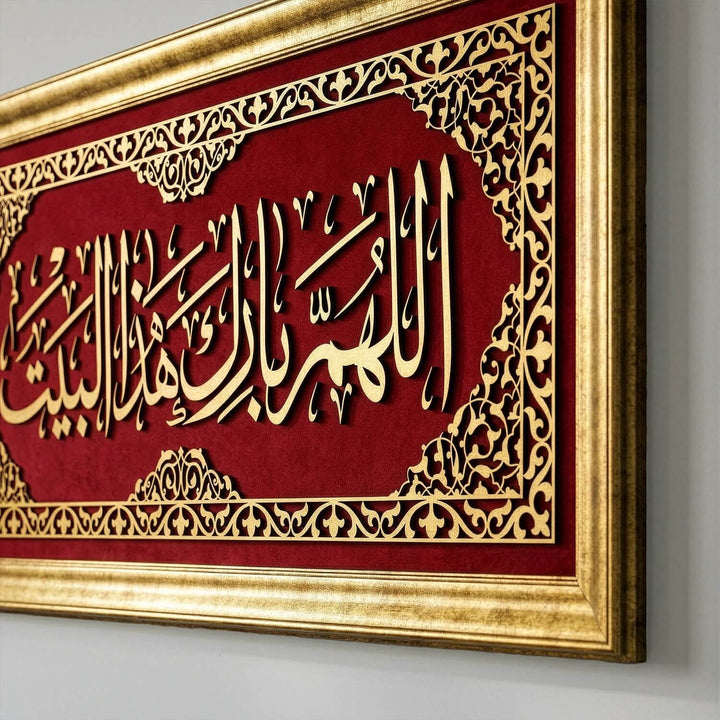 اللَّهُمَّ بَارِك هَذَا البَيْت